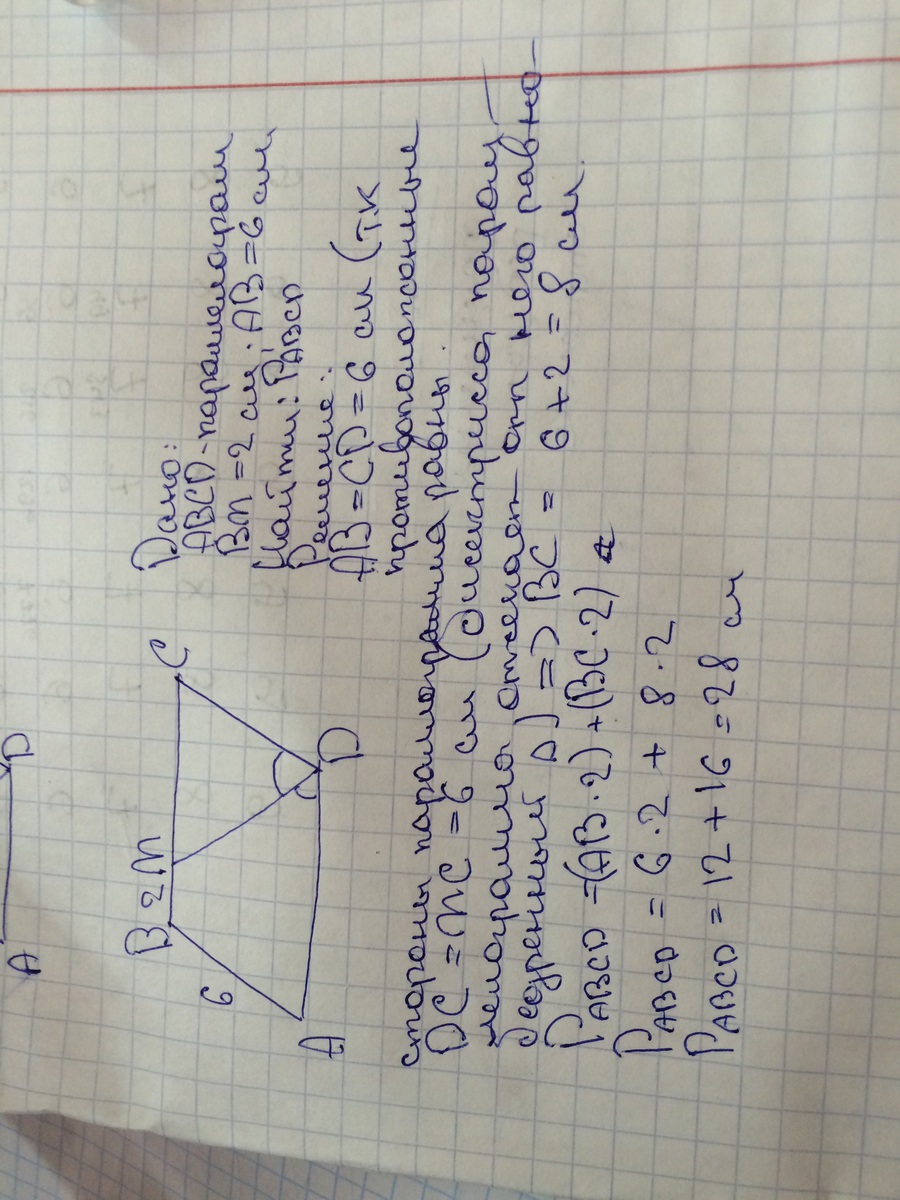 A D
B 2 M C
6
A D
Дано:
ABCD-параллелограмм
BM = 2 см. AB = 6 см
Найти: PABCD
Решение:
AB = CD = 6 см (т.к
противоположные
стороны параллелограмма равны.
DC = MC = 6 см (биссектриса парал-
лелограмма отсекает от него равно-
бедренный Δ) => BC = 6 + 2 = 8 см.
PABCD =(AB·2)+(BC·2)
PABCD = 6·2 + 8·2
PABCD = 12 + 16 = 28 см